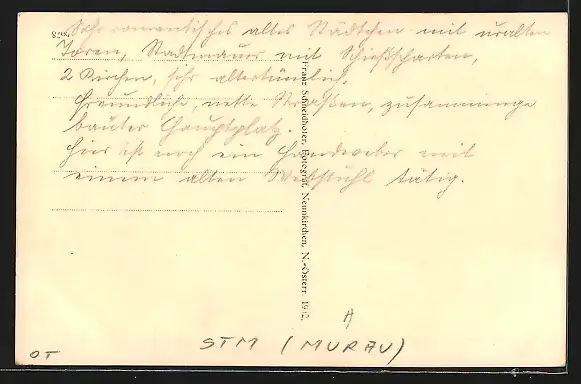 Sehr romantisches altes Städtchen mit uralten
Toren, Stadtmauer mit Schießscharten,
2 Kirchen, sehr altertümlich.
Freundliche, nette Straßen, zusammenge
bauter Hauptplatz.
Hier ist noch ein Handweber mit
einem alten Webstuhl tätig.
Franz Schneidhofer, Fotograf, Neunkirchen, N.-Österr. 1932.
A
STM (MURAU)
OT